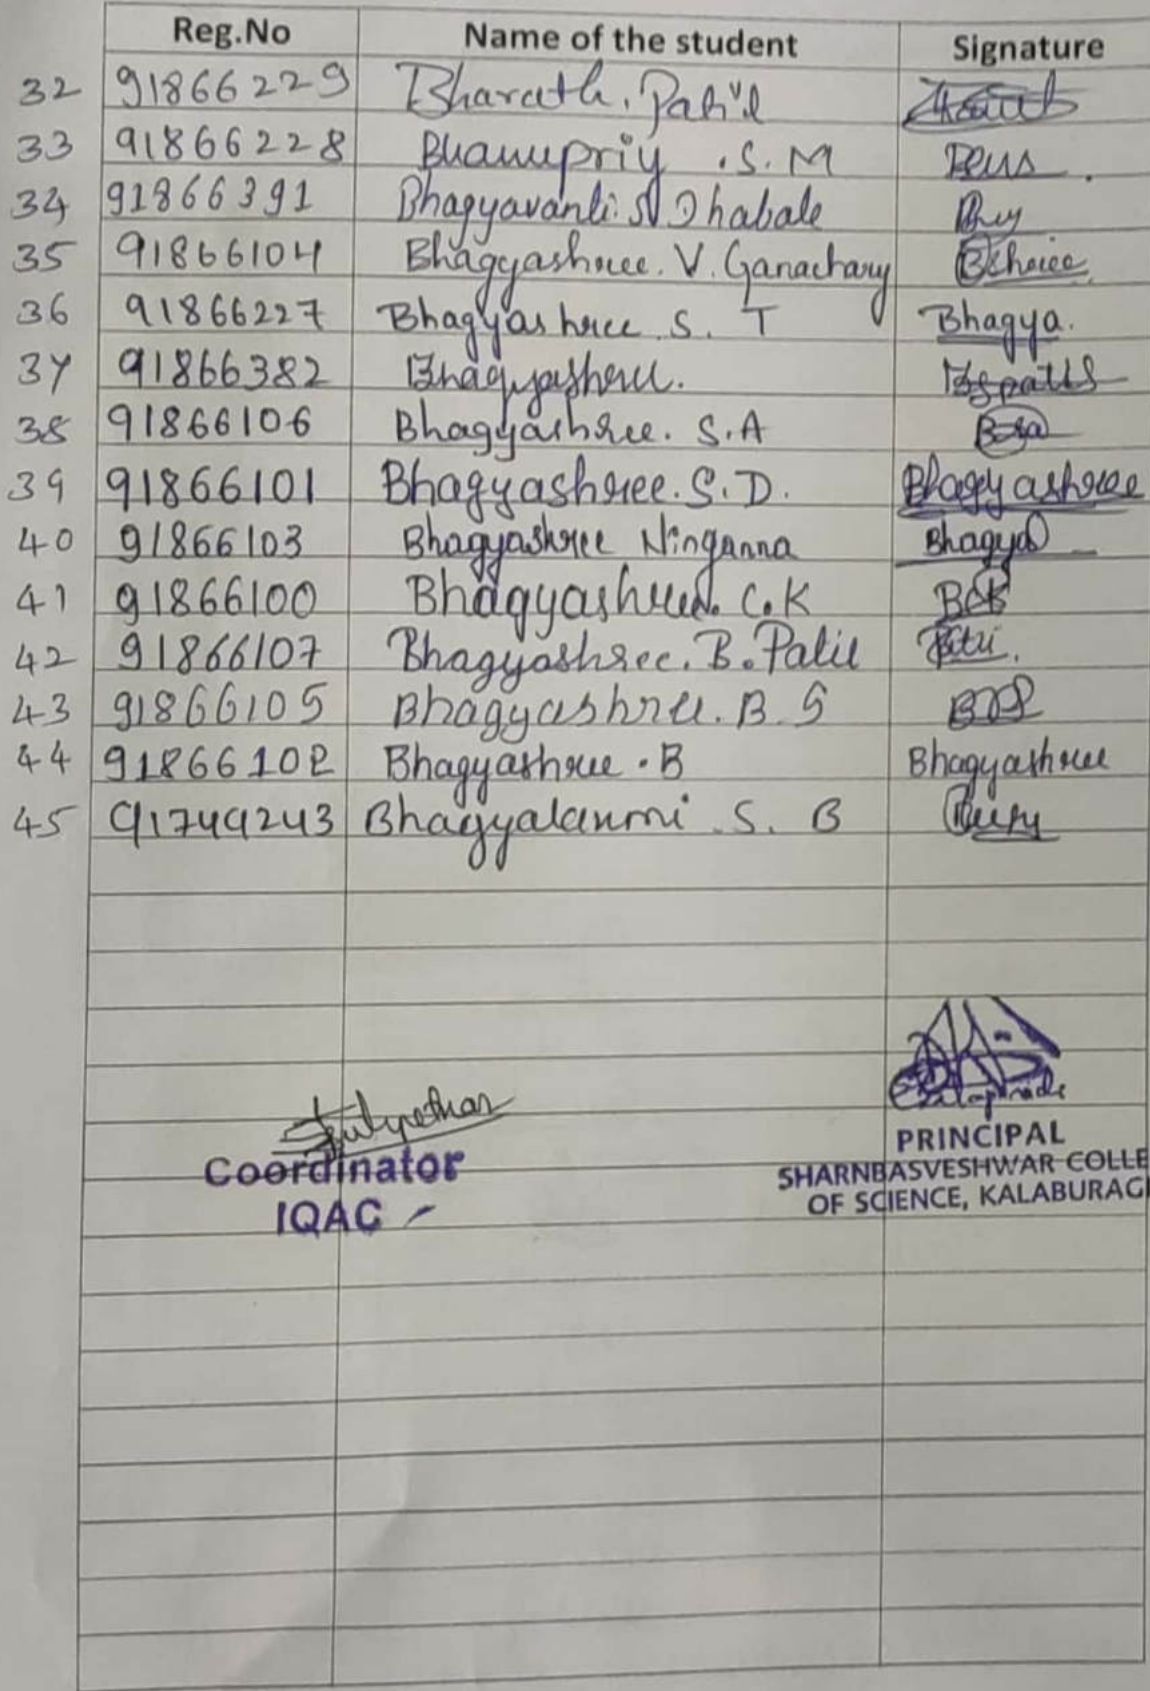 Reg.No Name of the student Signature
32 91866229 Bharath. Patil
33 91866228 Bhanupriy .S.M
34 91866391 Bhagyavanti S Dhabale
35 91866104 Bhagyashree. V. Ganachary Bshree
36 91866227 Bhagyashree S. T Bhagya.
37 91866382 Bhagyashree.
38 91866106 Bhagyashree. S.A
39 91866101 Bhagyashree. S. D. Bhagyashree
40 91866103 Bhagyashree Ninganna Bhagya
41 91866100 Bhagyashree. C.K BCK
42 91866107 Bhagyashree. B. Patil
43 91866105 Bhagyashree. B S
44 91866102 Bhagyashree . B Bhagyashree
45 91749243 Bhagyalaxmi S. B
Coordinator
IQAC
PRINCIPAL
SHARNBASVESHWAR COLLE
OF SCIENCE, KALABURAGI